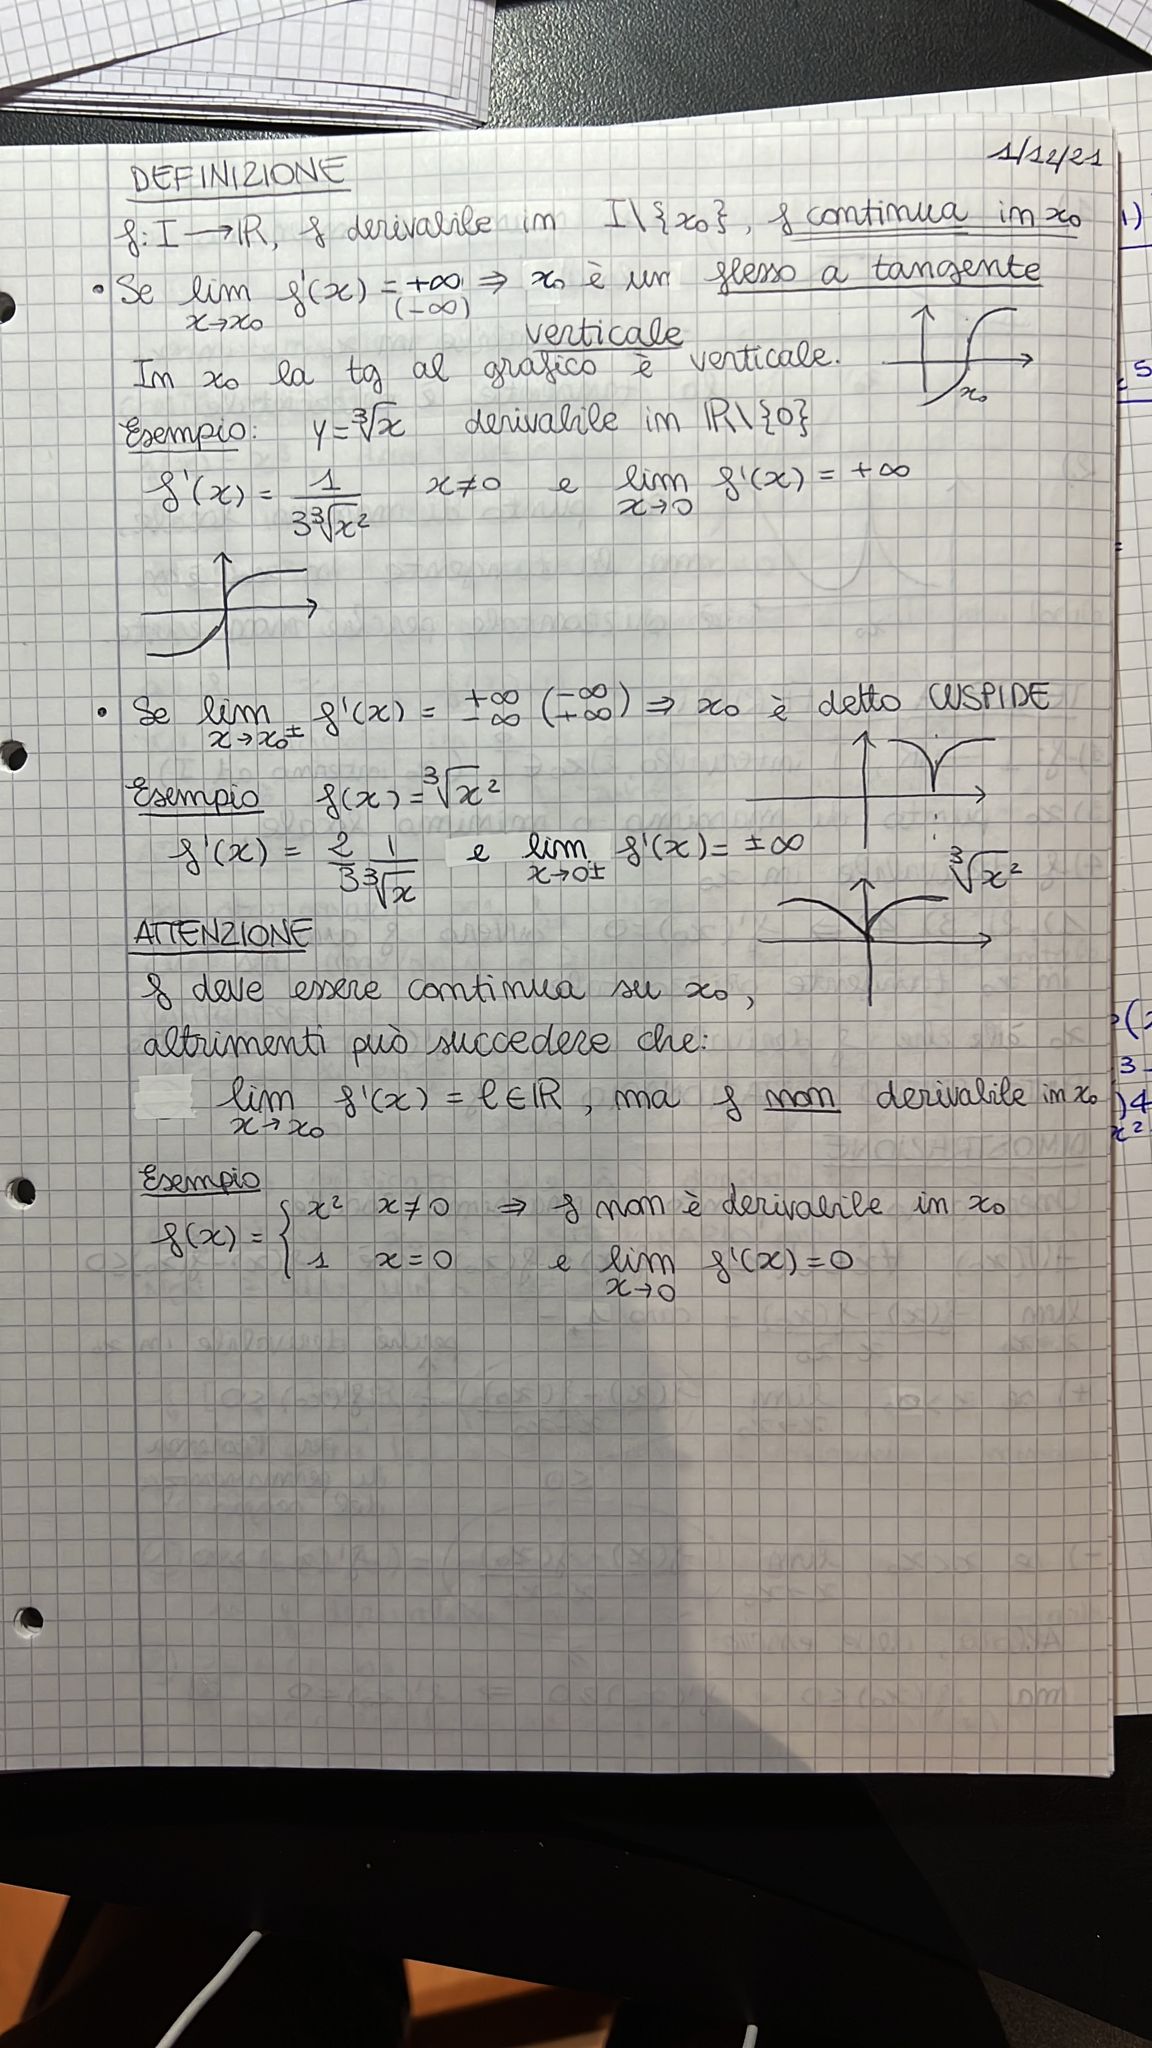 1/12/21
DEFINIZIONE
f: I → ℝ, f derivabile in I\{x₀}, f continua in x₀
• Se lim f'(x) = +∞ ⇒ x₀ è un flesso a tangente
x→x₀ (-∞)
verticale
In x₀ la tg al grafico è verticale.
x₀
Esempio: y = ∛x derivabile in ℝ\{0}
f'(x) = 1/(3∛x²) x≠0 e lim f'(x) = +∞
x→0
• Se lim f'(x) = +∞ (-∞) ⇒ x₀ è detto CUSPIDE
x→x₀± -∞ (+∞)
Esempio f(x) = ∛x²
f'(x) = 2/3 1/∛x e lim f'(x) = ±∞
x→0±
∛x²
ATTENZIONE
f deve essere continua su x₀,
altrimenti può succedere che:
lim f'(x) = ℓ∈ℝ, ma f non derivabile in x₀
x→x₀
Esempio
f(x) = { x² x≠0 ⇒ f non è derivabile in x₀
1 x=0 e lim f'(x) = 0
x→0
1)
5
3
)4
x²